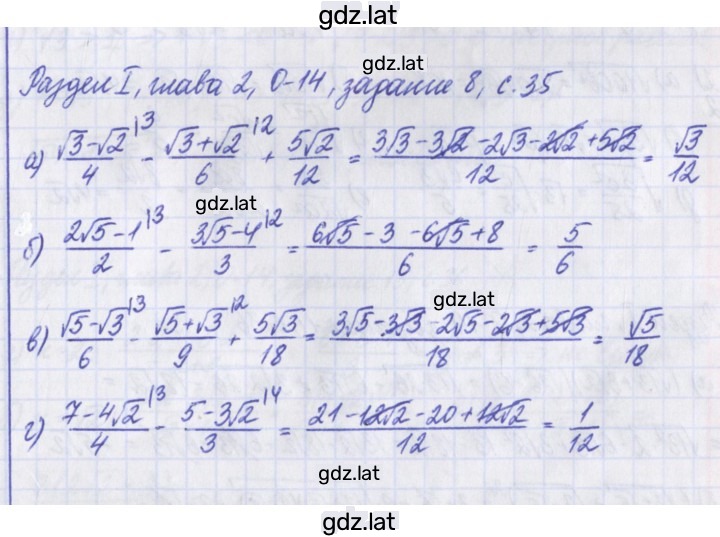 gdz.lat
gdz.lat
Раздел I, глава 2, О-14, задание 8, с. 35
а) (√3-√2)/4 |3 - (√3+√2)/6 |2 + 5√2/12 = (3√3-3√2-2√3-2√2+5√2)/12 = √3/12
gdz.lat
б) (2√5-1)/2 |3 - (3√5-4)/3 |2 = (6√5-3-6√5+8)/6 = 5/6
gdz.lat
в) (√5-√3)/6 |3 - (√5+√3)/9 |2 + 5√3/18 = (3√5-3√3-2√5-2√3+5√3)/18 = √5/18
г) (7-4√2)/4 |3 - (5-3√2)/3 |4 = (21-12√2-20+12√2)/12 = 1/12
gdz.lat
gdz.lat